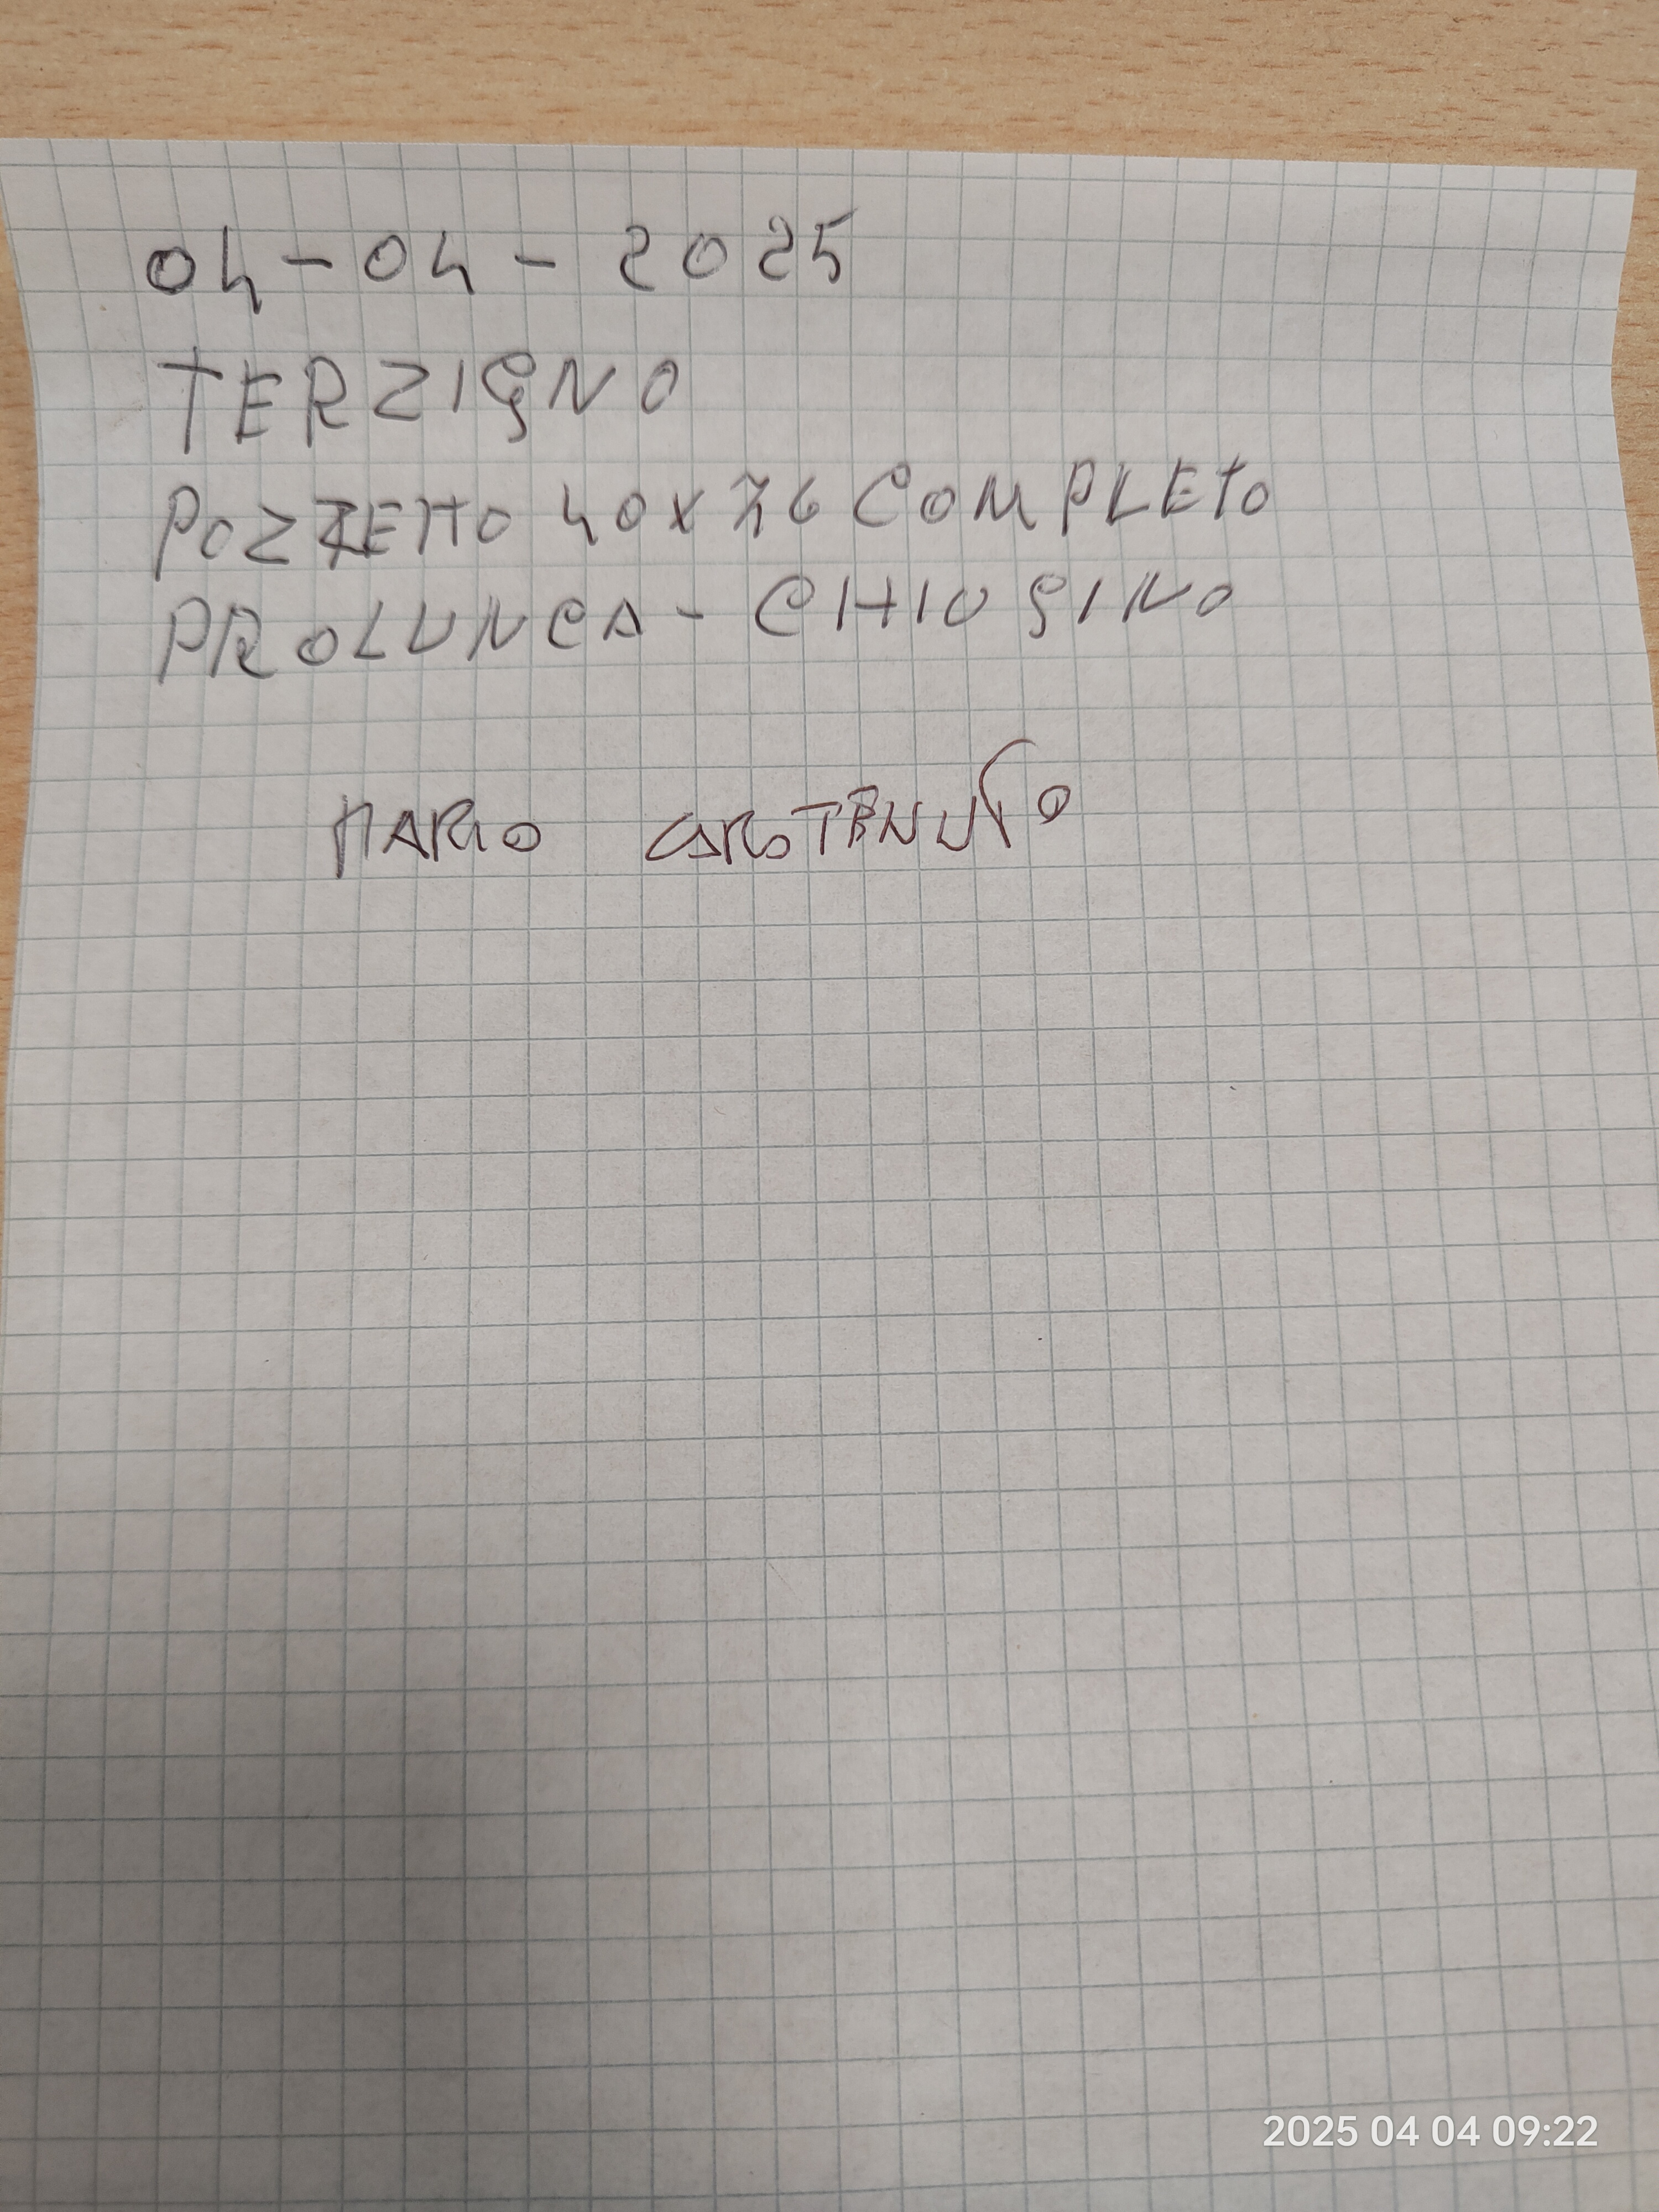 04-04-2025
TERZIGNO
POZZETTO 40X76 COMPLETO
PROLUNGA-CHIUSINO
MARIO CAROTENUTO
2025 04 04 09:22